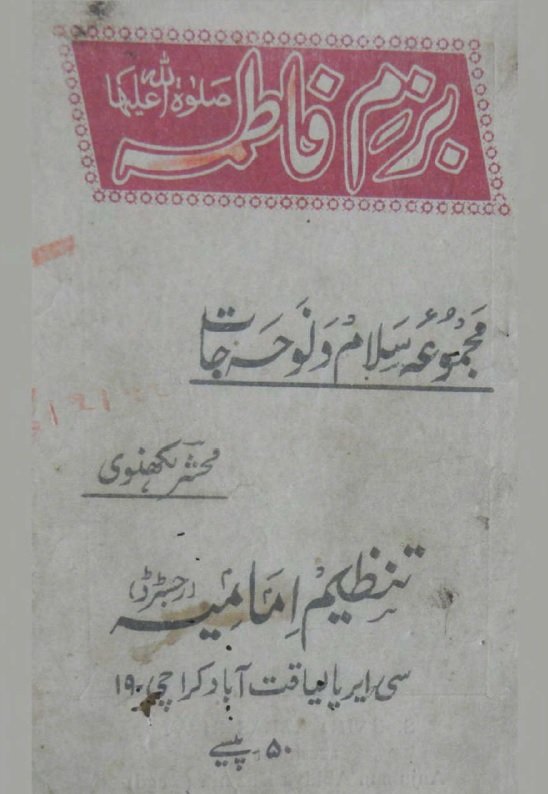 بزمِ فاطمہ صلوٰۃ اللہ علیہا
مجموعۂ سلام و نوحہ جات
محشر لکھنوی
تنظیم امامیہ (رجسٹرڈ)
سی ایریا لیاقت آباد کراچی ۱۹
۵۰ پیسے